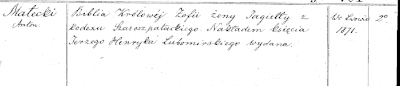 Małecki Antoni. Biblia Królowéj Zofii żony Jagiełły z We Lwowie 2º
kodexu Szaroszpatackiego Nakładem księcia 1871.
Jerzego Henryka Lubomirskiego wydana.